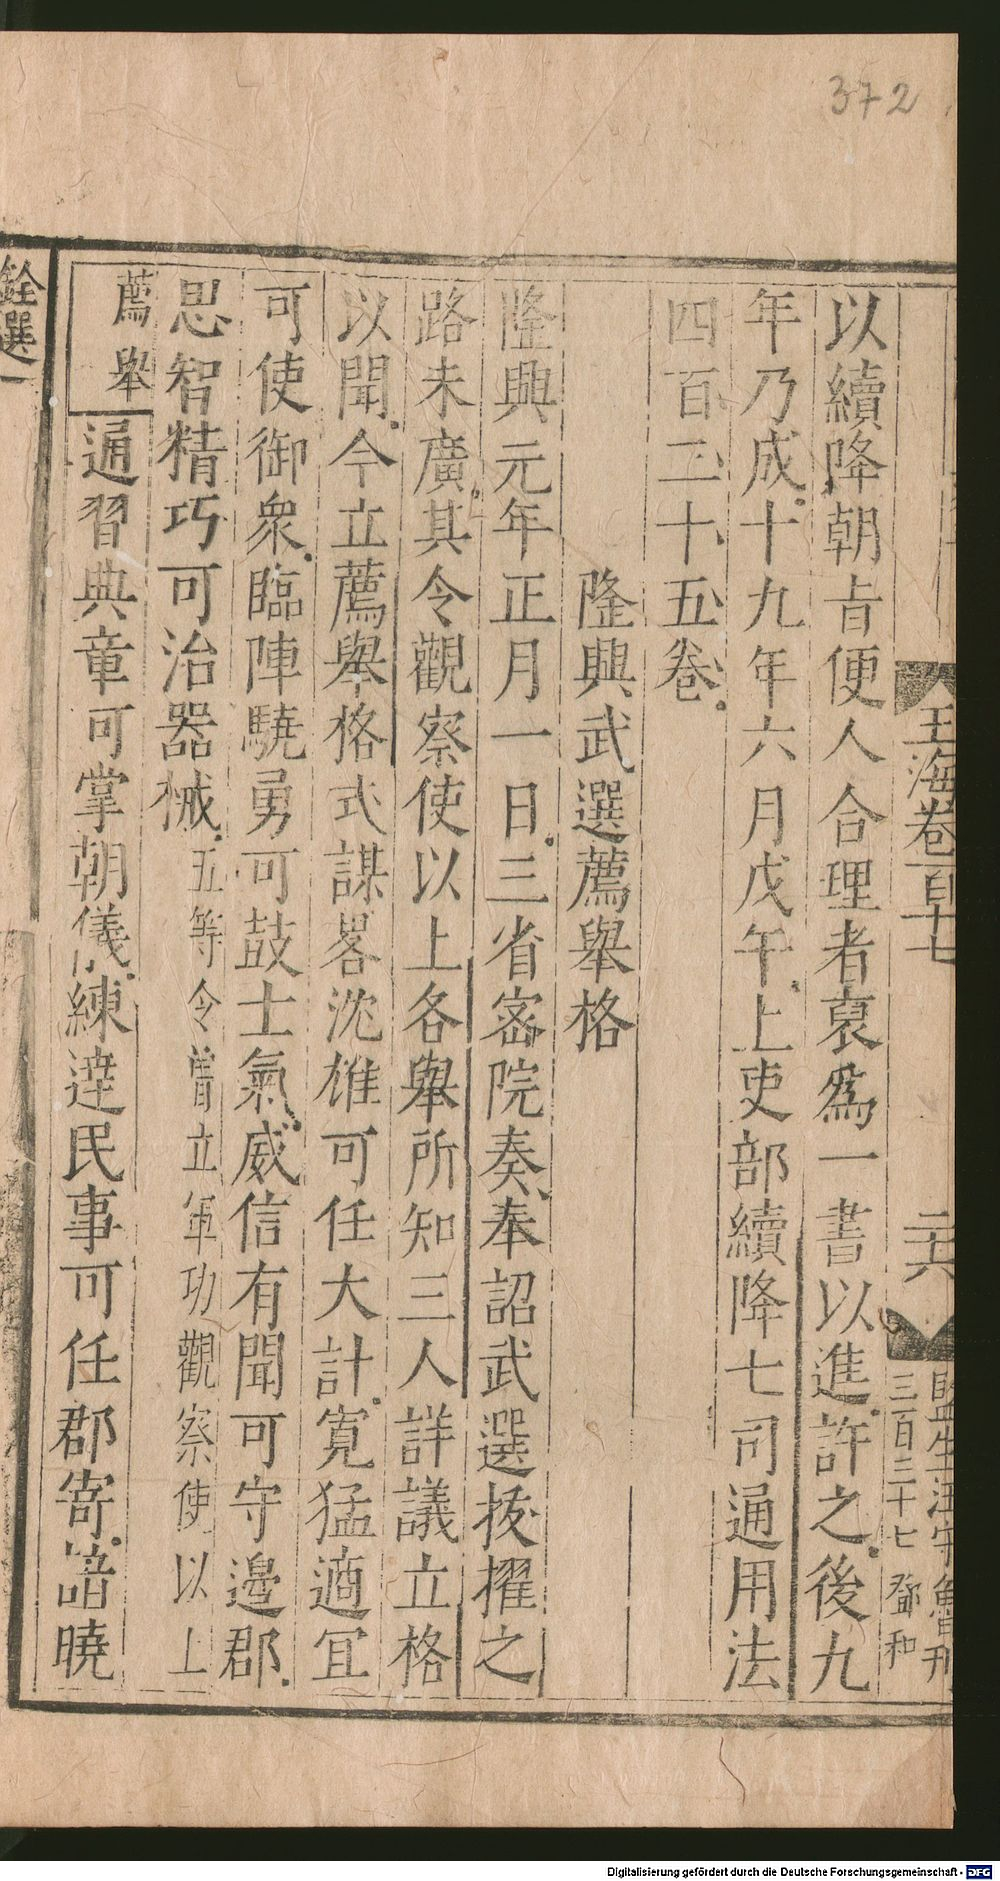 372
玉海卷百十七
二六
三百三十七 鄧和
以續降朝旨便人合理者裒爲一書以進許之後九
年乃成十九年六月戊午上吏部續降七司通用法
四百二十五卷
隆興武選薦舉格
隆興元年正月一日三省密院奏奉詔武選拔擢之
路未廣其令觀察使以上各舉所知三人詳議立格
以聞今立薦舉格式謀畧沈雄可任大計寬猛適宜
可使御衆臨陣驍勇可鼓士氣威信有聞可守邊郡
思智精巧可治器械五等令曾立軍功觀察使以上
薦舉
通習典章可掌朝儀練達民事可任郡寄諳曉
銓選一
Digitalisierung gefördert durch die Deutsche Forschungsgemeinschaft - DFG